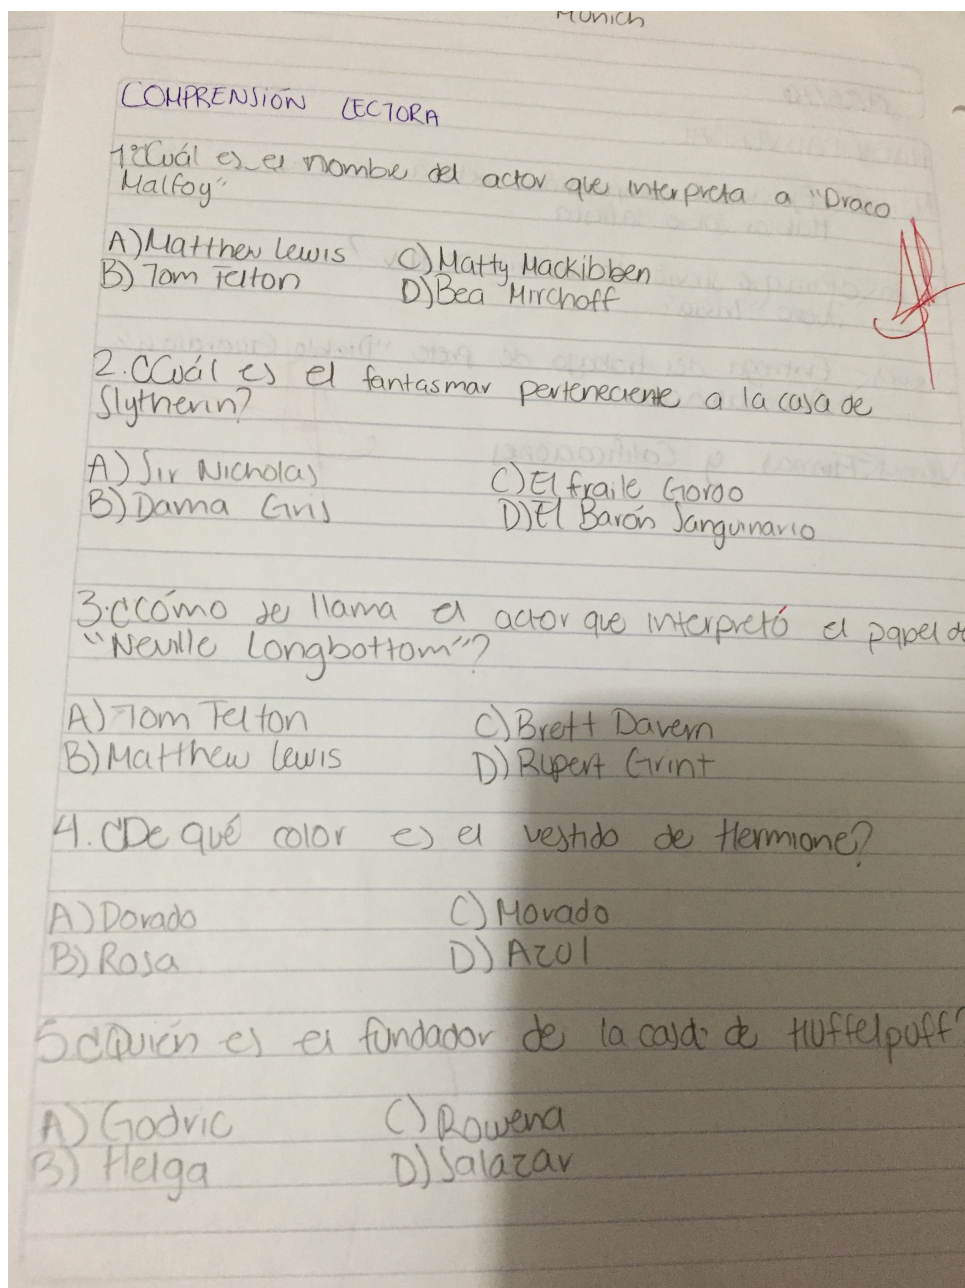 Munich
COMPRENSIÓN LECTORA
1¿Cuál es el nombre del actor que interpreta a "Draco
Malfoy"
A)Matthew Lewis C)Matty Mackibben
B)Tom Felton D)Bea Mirchoff
2.¿Cuál es el fantasmar perteneciente a la casa de
Slytherin?
A)Sir Nicholas C)El fraile Gordo
B)Dama Gris D)El Barón Sanguinario
3.¿Cómo se llama el actor que interpretó el papel de
"Neville Longbottom"?
A)Tom Felton C)Brett Davern
B)Matthew Lewis D)Rupert Grint
4.¿De qué color es el vestido de Hermione?
A)Dorado C)Morado
B)Rosa D)Azul
5¿Quién es el fundador de la casa de Huffelpuff?
A)Godric C)Rowena
B)Helga D)Salazar